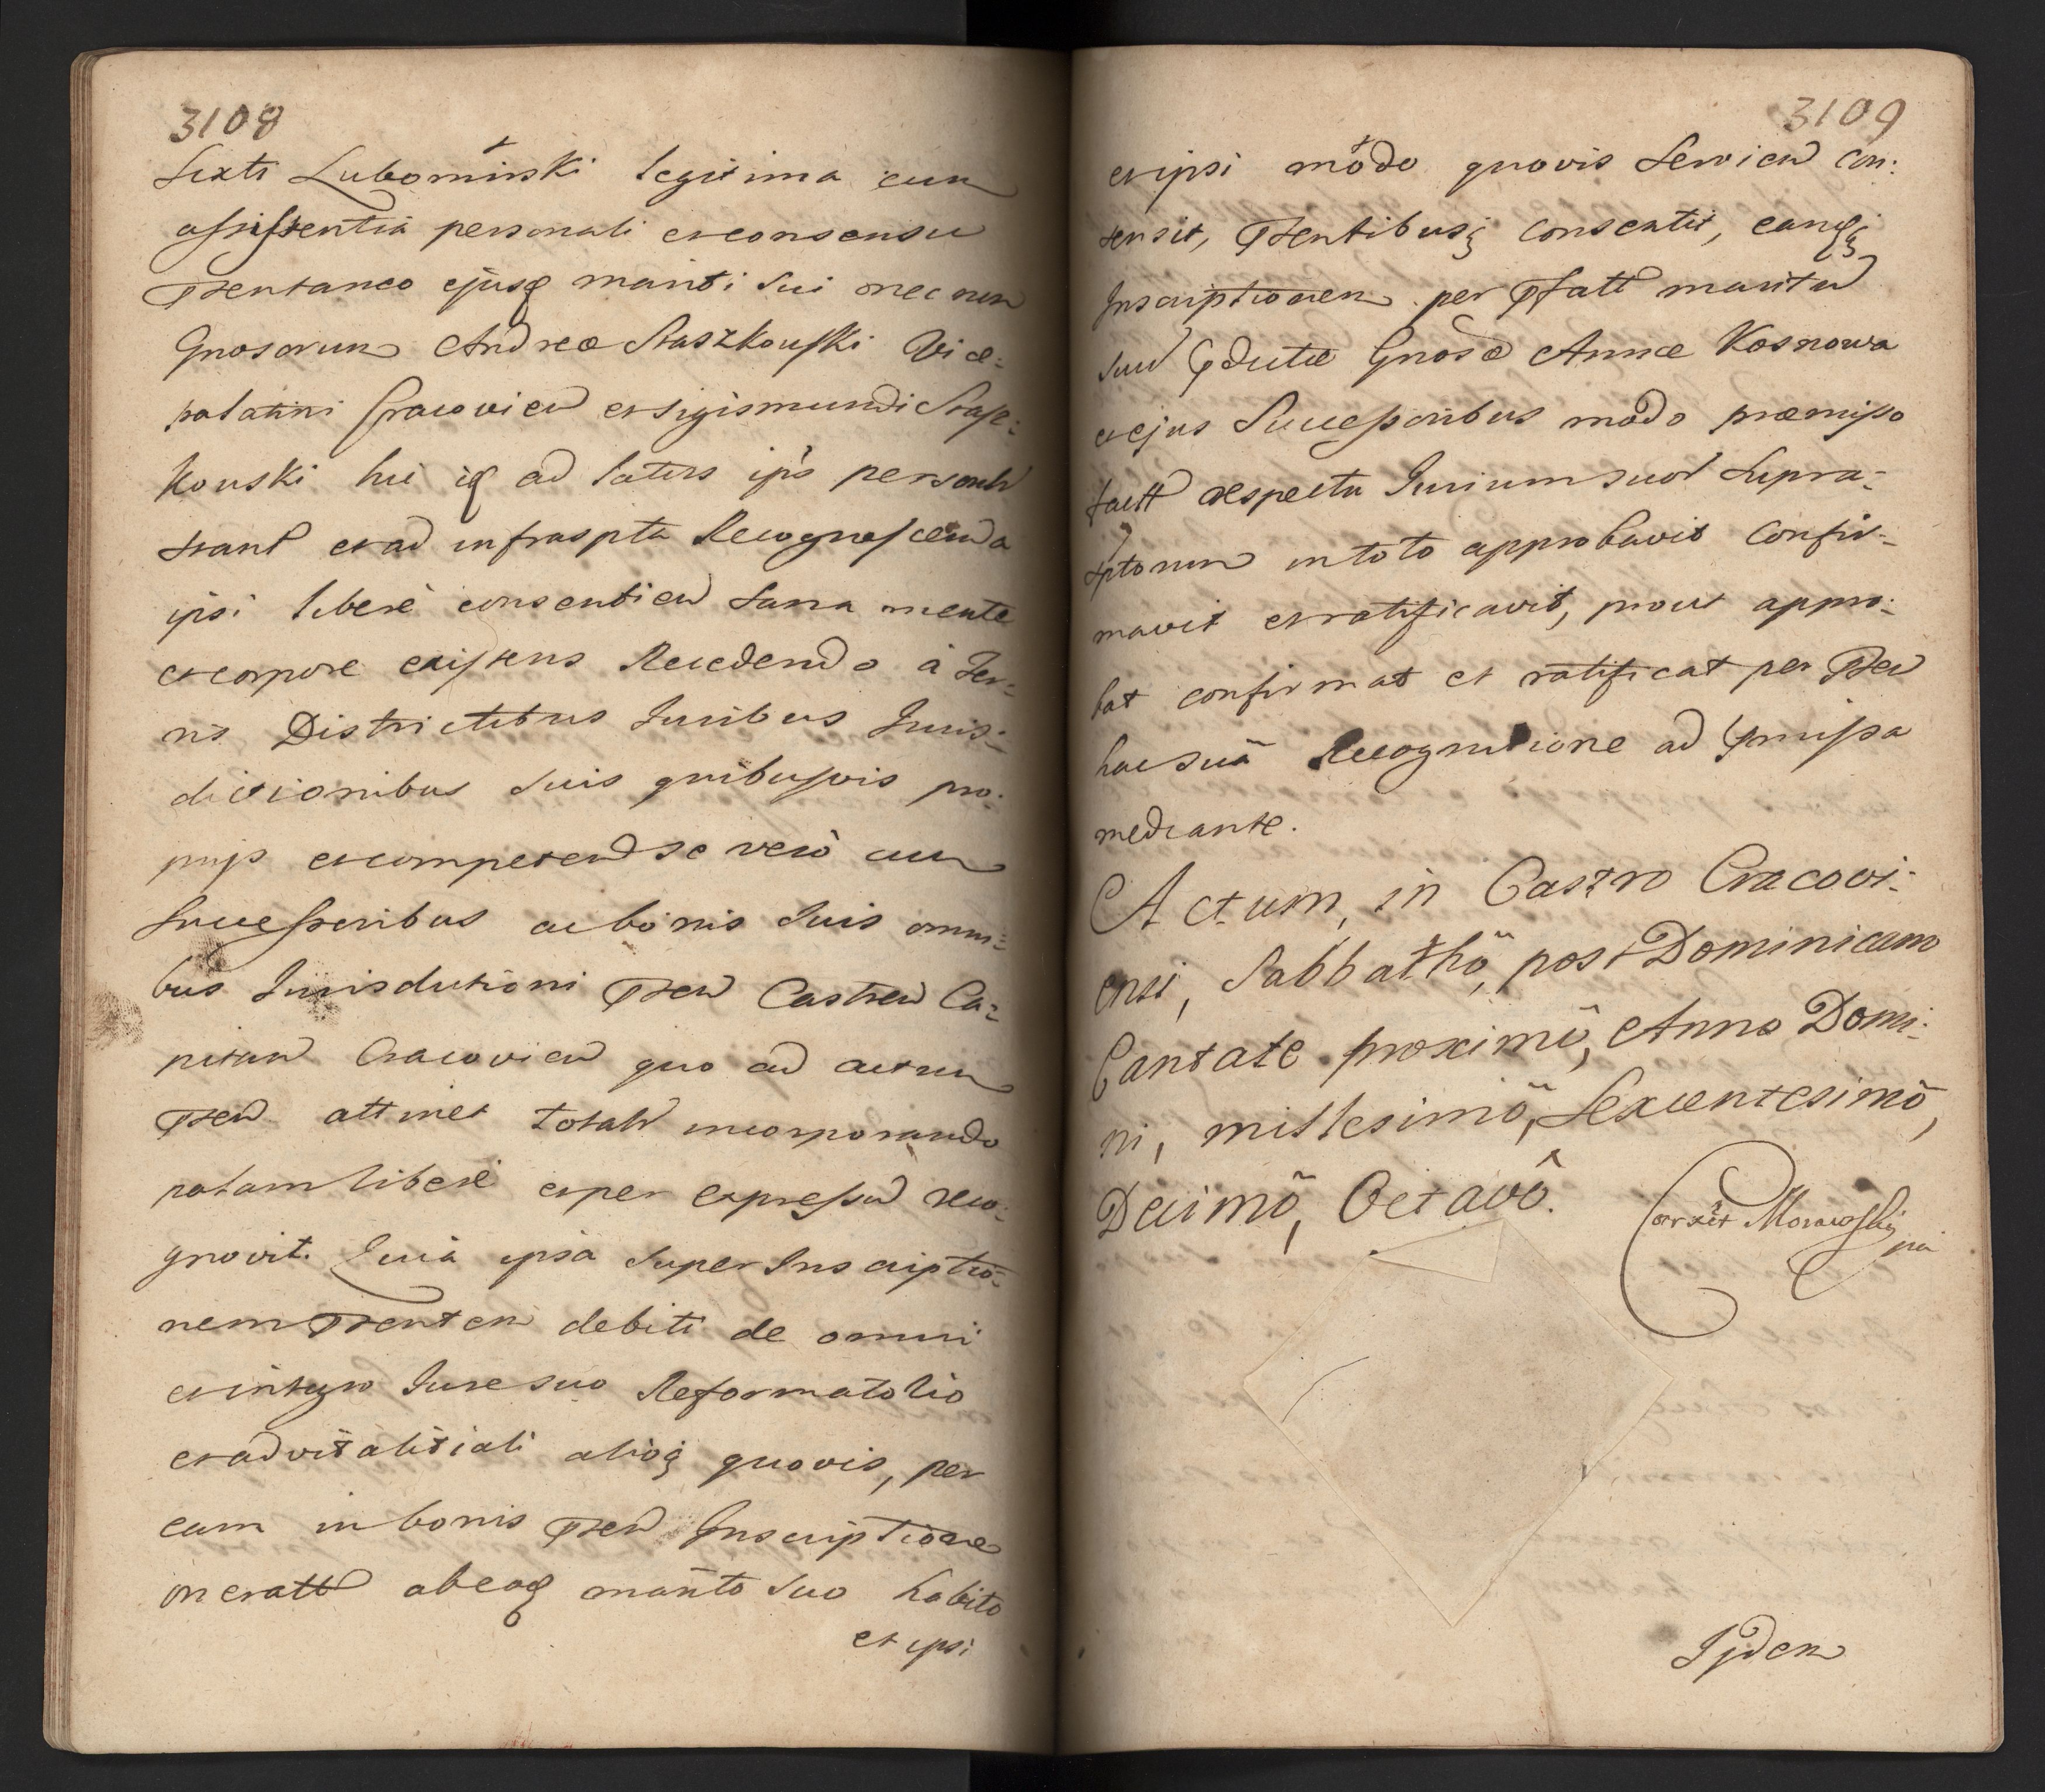 3108
Sixti Lubomirski legitima cum
assistentia personali et consensu
pntaneo ejusq mariti sui nec non
Gnosorum Andreæ Staszkowski Vice-
palatini Cracovien et Sigismundi Stasz-
kowski hic iq ad latus ips personalr
stant et ad infrascpta Recognoscenda
ipsi liberè consentien sana mente
et corpore existens Recedendo à Ter-
ris Districtibus Iuribus Iuris-
dictionibus suis quibusvis pro-
prijs et competen se verò cum
Successoribus ac bonis suis omni-
bus Iurisdictioni pnten Castren Ca-
pitan Cracovien quo ad actum
pnten attinet totalr incorporando
palam liberè et per expressum reco-
gnovit. Quia ipsa super Inscriptio-
nem pntentem debiti de omni
et integro Iure suo Reformatorio
et advitalitiali alioq quovis, per
eam in bonis pnten Inscriptione
oneratt ab eoq marito suo habito
et ipsi
3109
et ipsi modo quovis Servien con-
sensit, pntentibusq consentit, eamqq
Inscriptionem per pfatt maritum
suum pdictæ Gnosæ Annæ Kosnowa
et ejus Successoribus modo præmisso
factt respectu Iurium suor supra-
sptorum in toto approbavit confir-
mavit et ratificavit, prout appro-
bat confirmat et ratificat per pnten
hac suâ Recognitione ad pmissa
mediante.
Actum, in Castro Cracovi-
ensi, Sabbathô, post Dominicam
Cantate proximô, Anno Domi-
ni, millesimô, Sexcentesimô,
Decimô, Octavô.
Corxit Morawski
mp
Ijdem